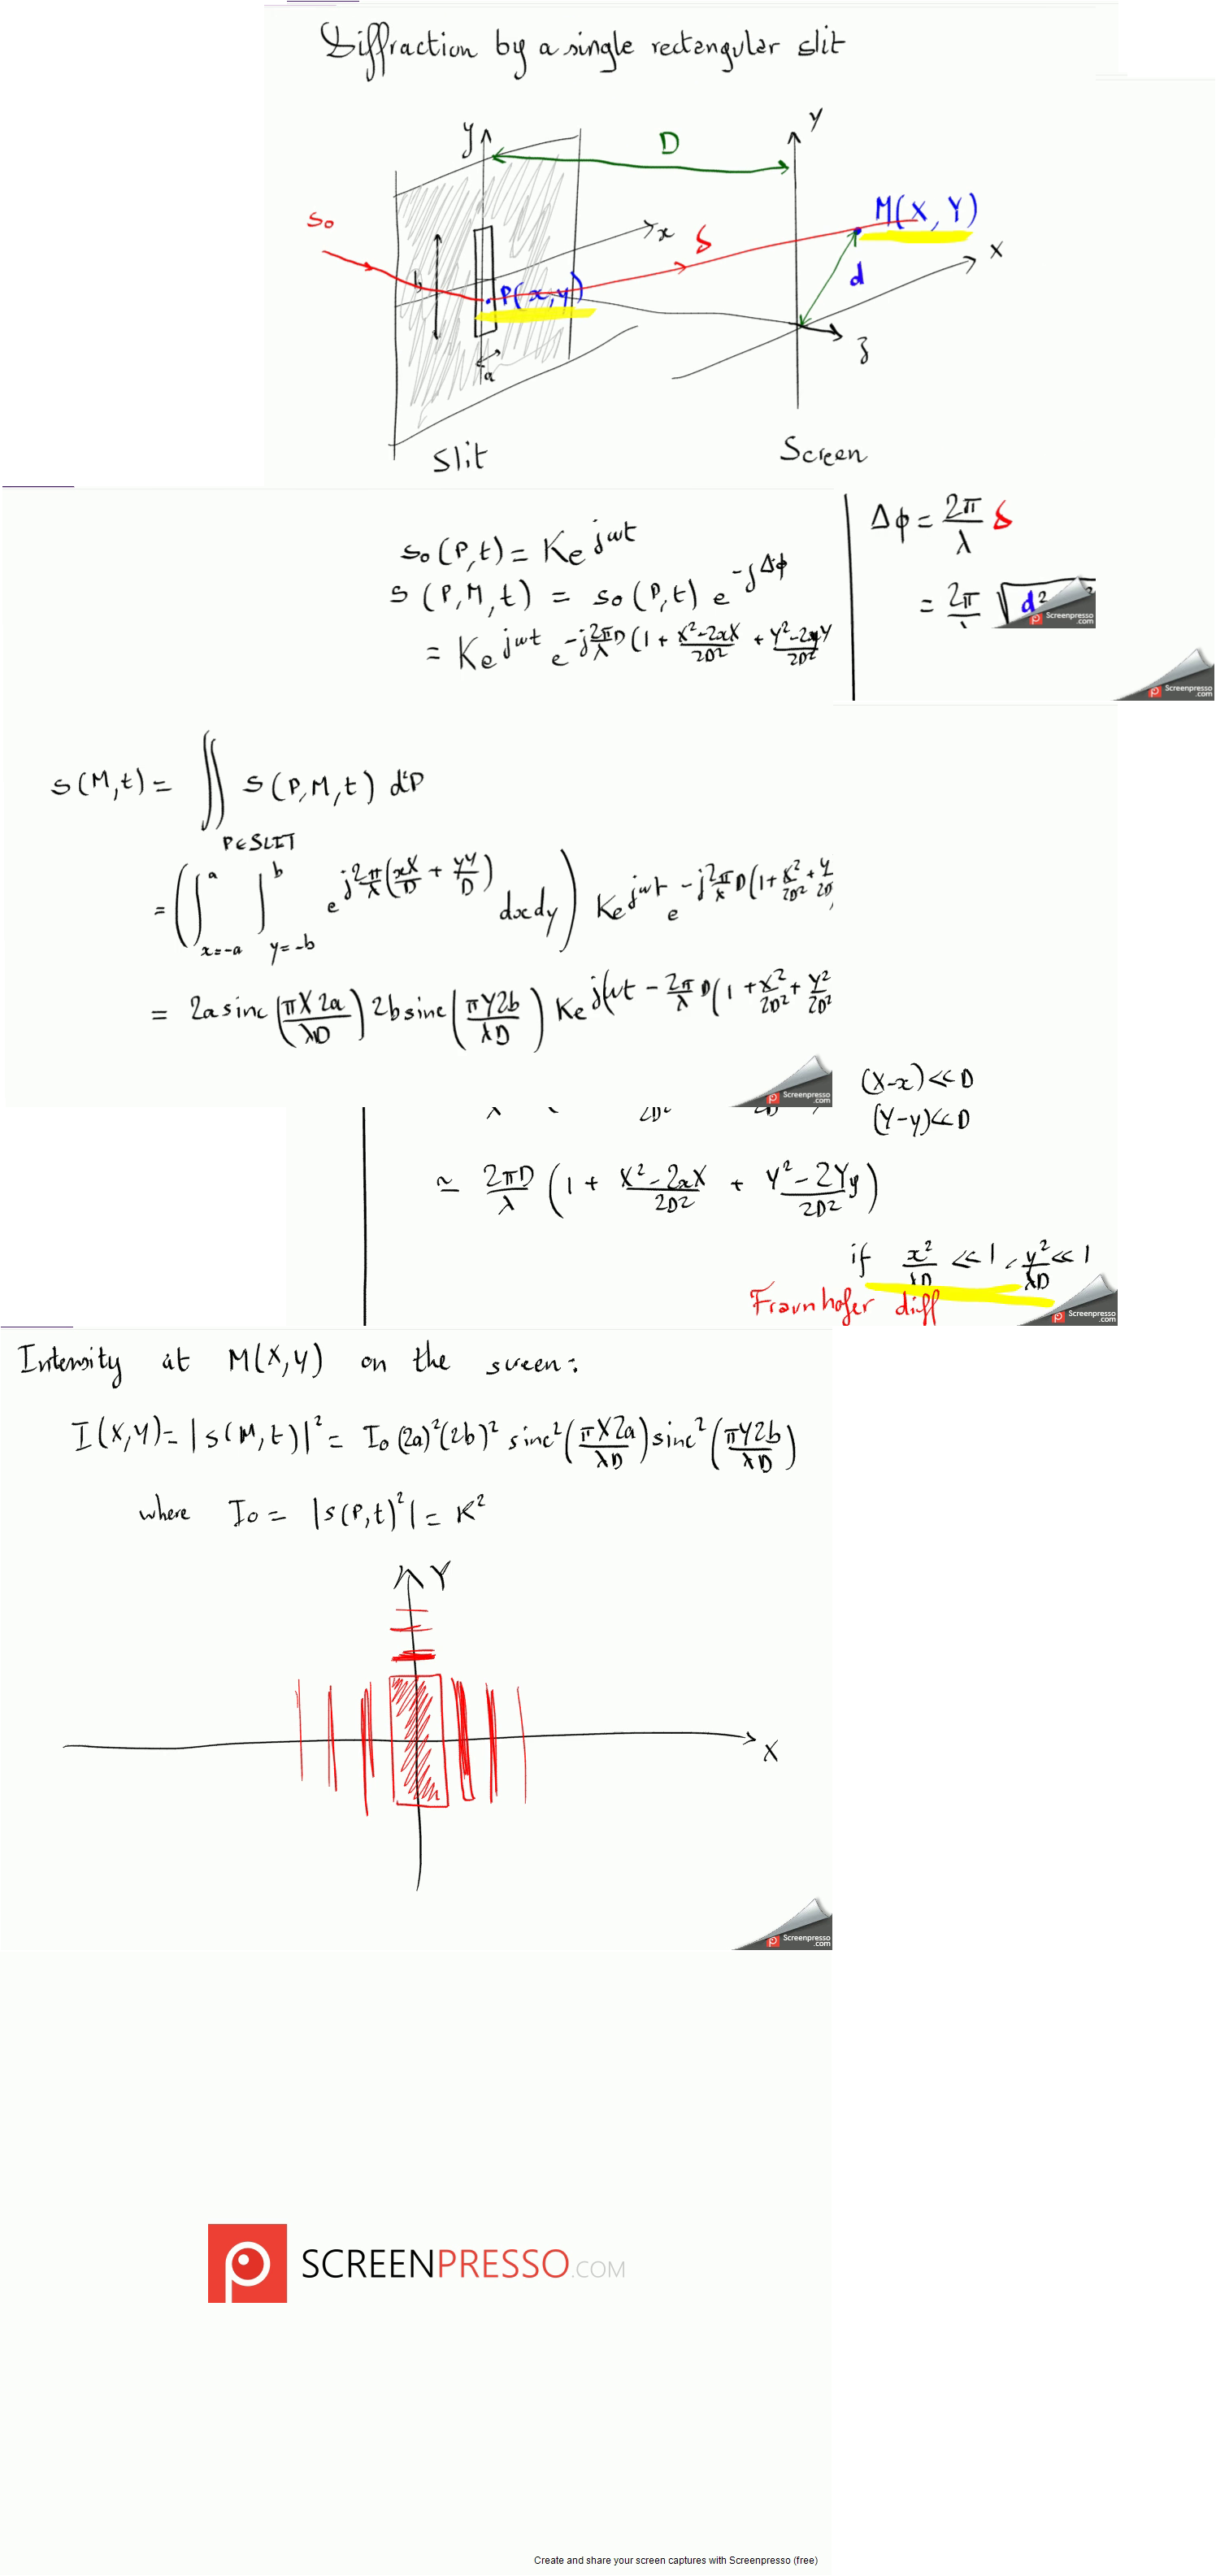 Diffraction by a single rectangular slit
y
D
Y
So
M(X,Y)
x
δ
X
b
P(x,y)
d
z
a
Slit
Screen
so(P,t) = Ke^jωt
s(P,M,t) = so(P,t) e^-jΔϕ
= Ke^jωt e^-j2π/λ D(1 + X²-2xX/2D² + Y²-2yY/2D²
Δϕ = 2π/λ δ
= 2π/λ √d²
Screenpresso
.com
Screenpresso
.com
s(M,t) = ∬ s(P,M,t) d²P
P∈SLIT
= (∫x=-a^a ∫y=-b^b e^j2π/λ(xX/D + yY/D) dxdy) Ke^jωt e^-j2π/λ D(1+X²/2D² + Y/2D
= 2a sinc(πX2a/λD) 2b sinc(πY2b/λD) Ke^j(ωt - 2π/λ D(1 + X²/2D² + Y²/2D²
Screenpresso
.com
(X-x)<<D
(Y-y)<<D
≃ 2πD/λ (1 + X²-2xX/2D² + Y²-2Yy/2D²)
if x²/λD <<1, y²/λD <<1
Fraunhofer diff
Screenpresso
.com
Intensity at M(X,Y) on the screen:
I(X,Y)=|s(M,t)|² = Io (2a)²(2b)² sinc²(πX2a/λD) sinc²(πY2b/λD)
where Io = |s(P,t)²| = K²
Y
X
Screenpresso
.com
SCREENPRESSO.COM
Create and share your screen captures with Screenpresso (free)